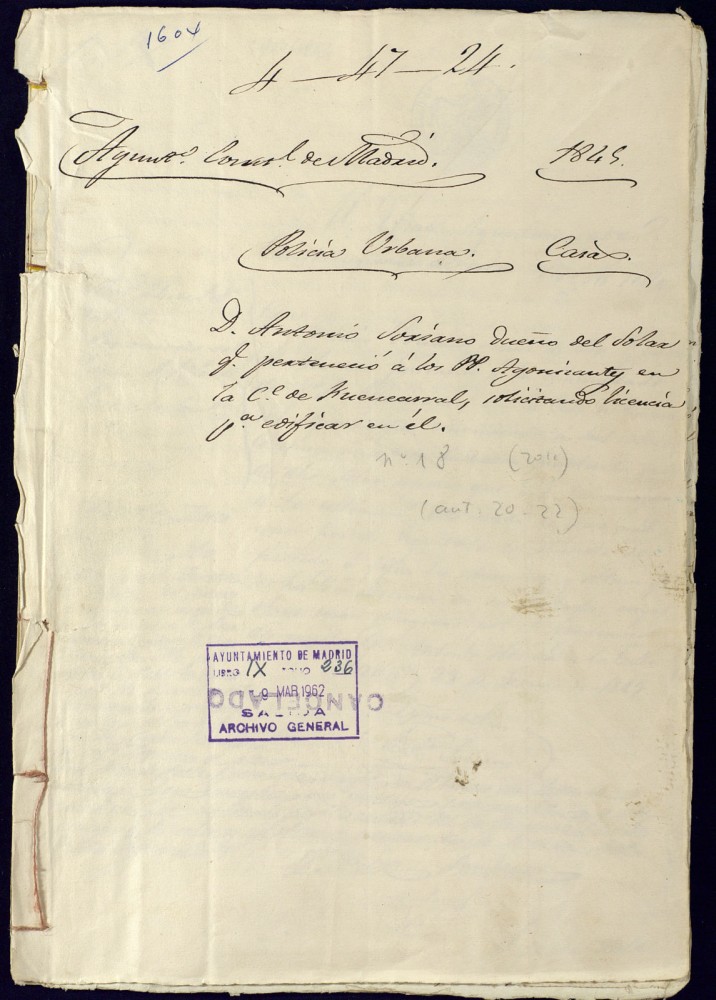 1604
4 - 47 - 24.
Ayunto. Constl. de Madrid. 1845.
Policía Urbana. Casas.
D. Antonio Soriano dueño del Solar
q. perteneció á los PP. Agonizantes en
la C.e de Fuencarral, solicitando licencia
pa. edificar en él.
nº 18 (20 )
(ant. 20-22)
AYUNTAMIENTO DE MADRID
LIBRO IX FOLIO 236
9 MAR 1962
CANCELADO
SALIDA
ARCHIVO GENERAL